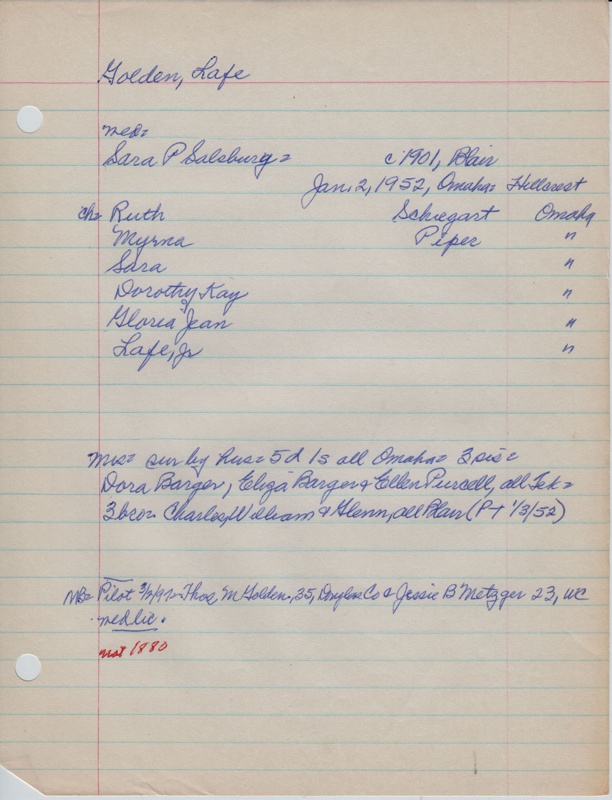 Golden, Lafe
med=
Sara P Salsburg = c 1901, Blair
Jan 2, 1952, Omaha= Hillcrest
ch= Ruth Schiegart Omaha
Myrna Piper "
Sara "
Dorothy Kay "
Gloria Jean "
Lafe, Jr "
Mrs= sur by hus= 5d 1s all Omaha= 3 sis=
Dora Barger, Eliza Barger & Ellen Purcell, all Tek=
3 bro= Charles, William & Glenn, all Blair (PT 1/3/52)
NB= Pilot Thos M Golden, 35, Douglas Co & Jessie B Metzger 23, WC
med lic.
not 1880